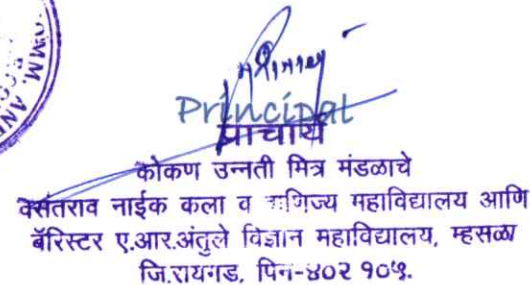 COMM. AND
Principal
प्राचार्य
कोकण उन्नती मित्र मंडळाचे
वसंतराव नाईक कला व वाणिज्य महाविद्यालय आणि
बॅरिस्टर ए.आर.अंतुले विज्ञान महाविद्यालय, म्हसळा
जि.रायगड, पिन-४०२ १०५.